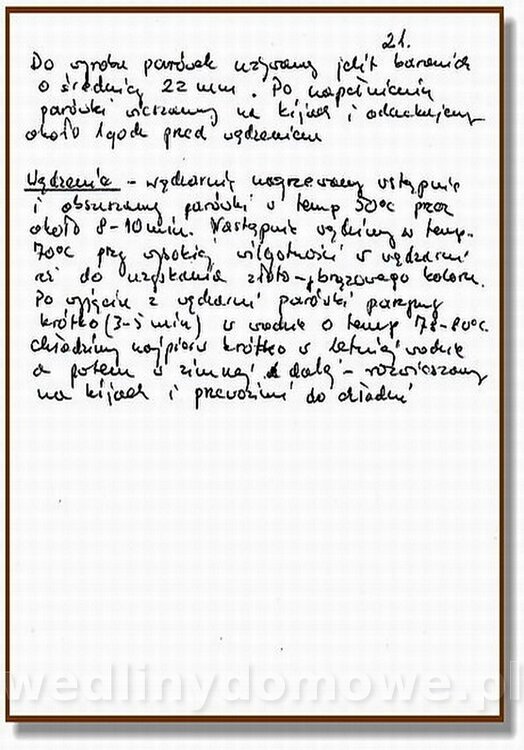 21.
Do wyrobu parówek używamy jelit baranich
o średnicy 22 mm. Po napełnieniu
parówki wieszamy na kijach i odczekujemy
około 1 godz przed wędzeniem
Wędzenie - wędzarnię nagrzewamy wstępnie
i obsuszamy parówki w temp 50°C przez
około 8-10 min. Następnie wędzimy w temp.
70°C przy wysokiej wilgotności w wędzarni
aż do uzyskania złoto-brązowego koloru.
Po wyjęciu z wędzarni parówki parzymy
krótko (3-5 min) w wodzie o temp 78-80°C.
chłodzimy najpierw krótko w letniej wodzie
a potem w zimnej i dalej - rozwieszamy
na kijach i przenosimy do chłodni
wedlinydomowe.pl